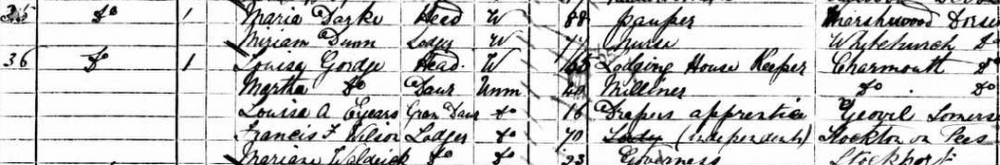 35 Do 1 Maria Darke Head W 88 pauper Marshwood Dorse
Miriam Dunn Lodger W Nurse Whitchurch Do
36 Do 1 Louisa Gordge Head W 65 Lodging House Keeper Charmouth Do
Martha Do Daur Unm 40 Milliner Do Do
Louisa A Eyears Gran Daur Do 16 Drapers apprentice Yeovil Somers
Francis F Wilson Lodger Do 70 Lady (independents) Stockton on Tees
Marian Do Do 23 Governess Stockport